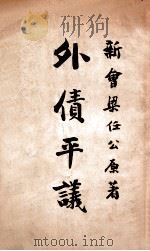 新會梁任公原著
外債平議
www.mtoou.info